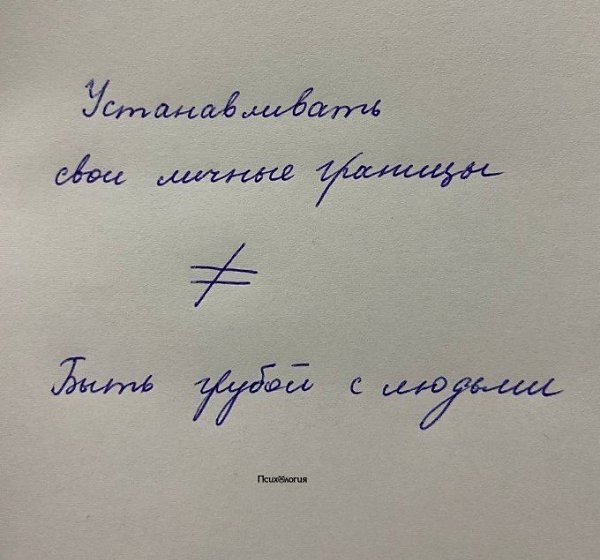 Устанавливать
свои личные границы
≠
Быть грубой с людьми
Психология